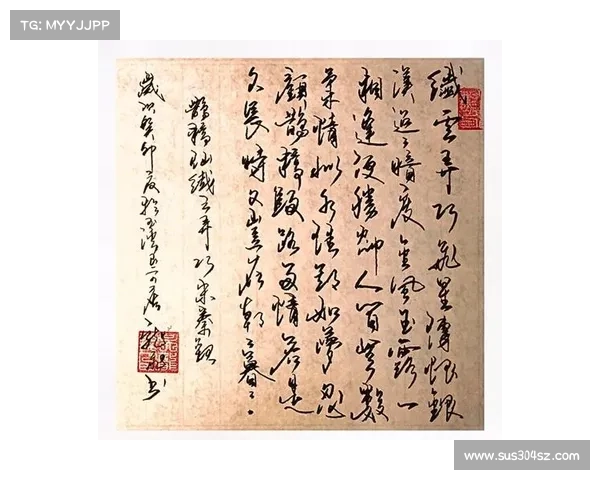 TG: MYYJJPP
纖雲弄巧飛星傳恨銀
漢迢〻暗度金風玉露一
相逢便勝卻人間無數
柔情似水佳期如夢忍
顧鵲橋歸路兩情若是
久長時又豈在朝〻暮〻
鵲橋仙纖雲弄巧宋秦觀
歲次癸卯夏於玉溪 居 書
www.sus304sz.com